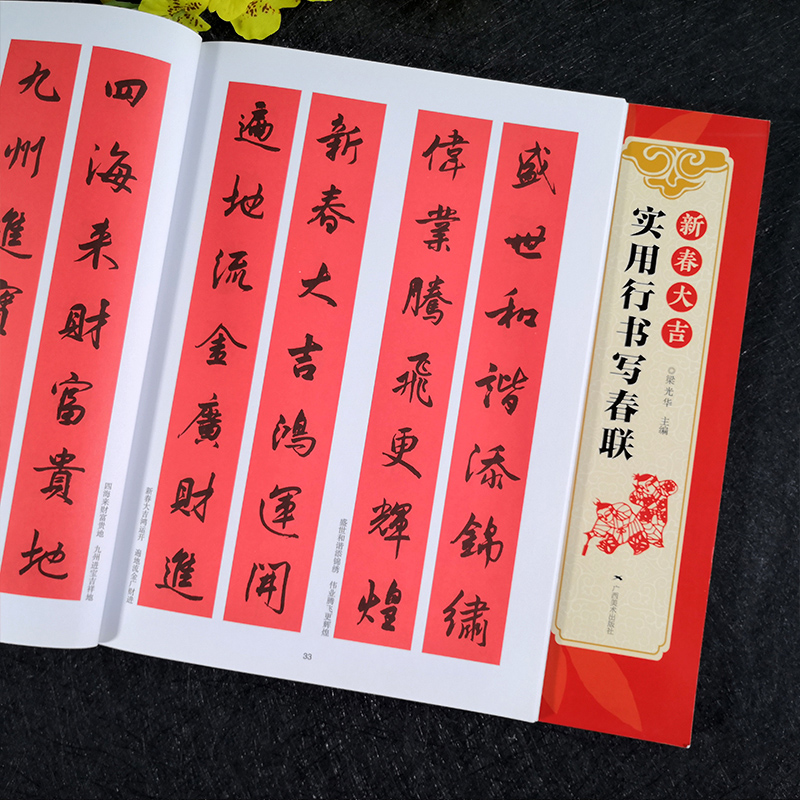 盛世和諧添錦繡
偉業騰飛更輝煌
盛世和谐添锦绣 伟业腾飞更辉煌
新春大吉鴻運開
遍地流金廣財進
新春大吉鸿运开 遍地流金广财进
33
四海来財富貴地
九州進寶
四海来财富贵地 九州进宝吉祥地
新春大吉
实用行书写春联
◎梁光华 主编
广西美术出版社